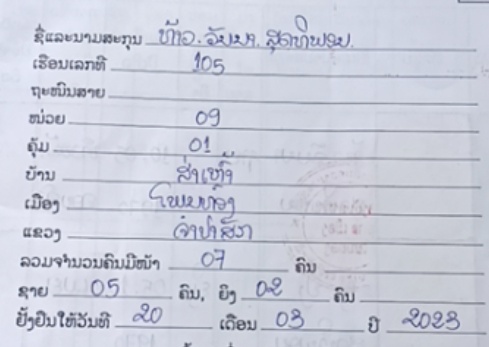 ຊື່ແລະນາມສະກຸນ ທ້າວ. ວັນນາ. ສຸດທິພອນ.
ເຮືອນເລກທີ 105
ຖະໜົນສາຍ
ໜ່ວຍ 09
ຄຸ້ມ 01
ບ້ານ
ເມືອງ ໂພນທອງ
ແຂວງ ຈຳປາສັກ
ລວມຈຳນວນຄົນມີໜ້າ 07 ຄົນ
ຊາຍ 05 ຄົນ, ຍິງ 02 ຄົນ
ຢັ້ງຢືນໃຫ້ວັນທີ 20 ເດືອນ 03 ປີ 2023